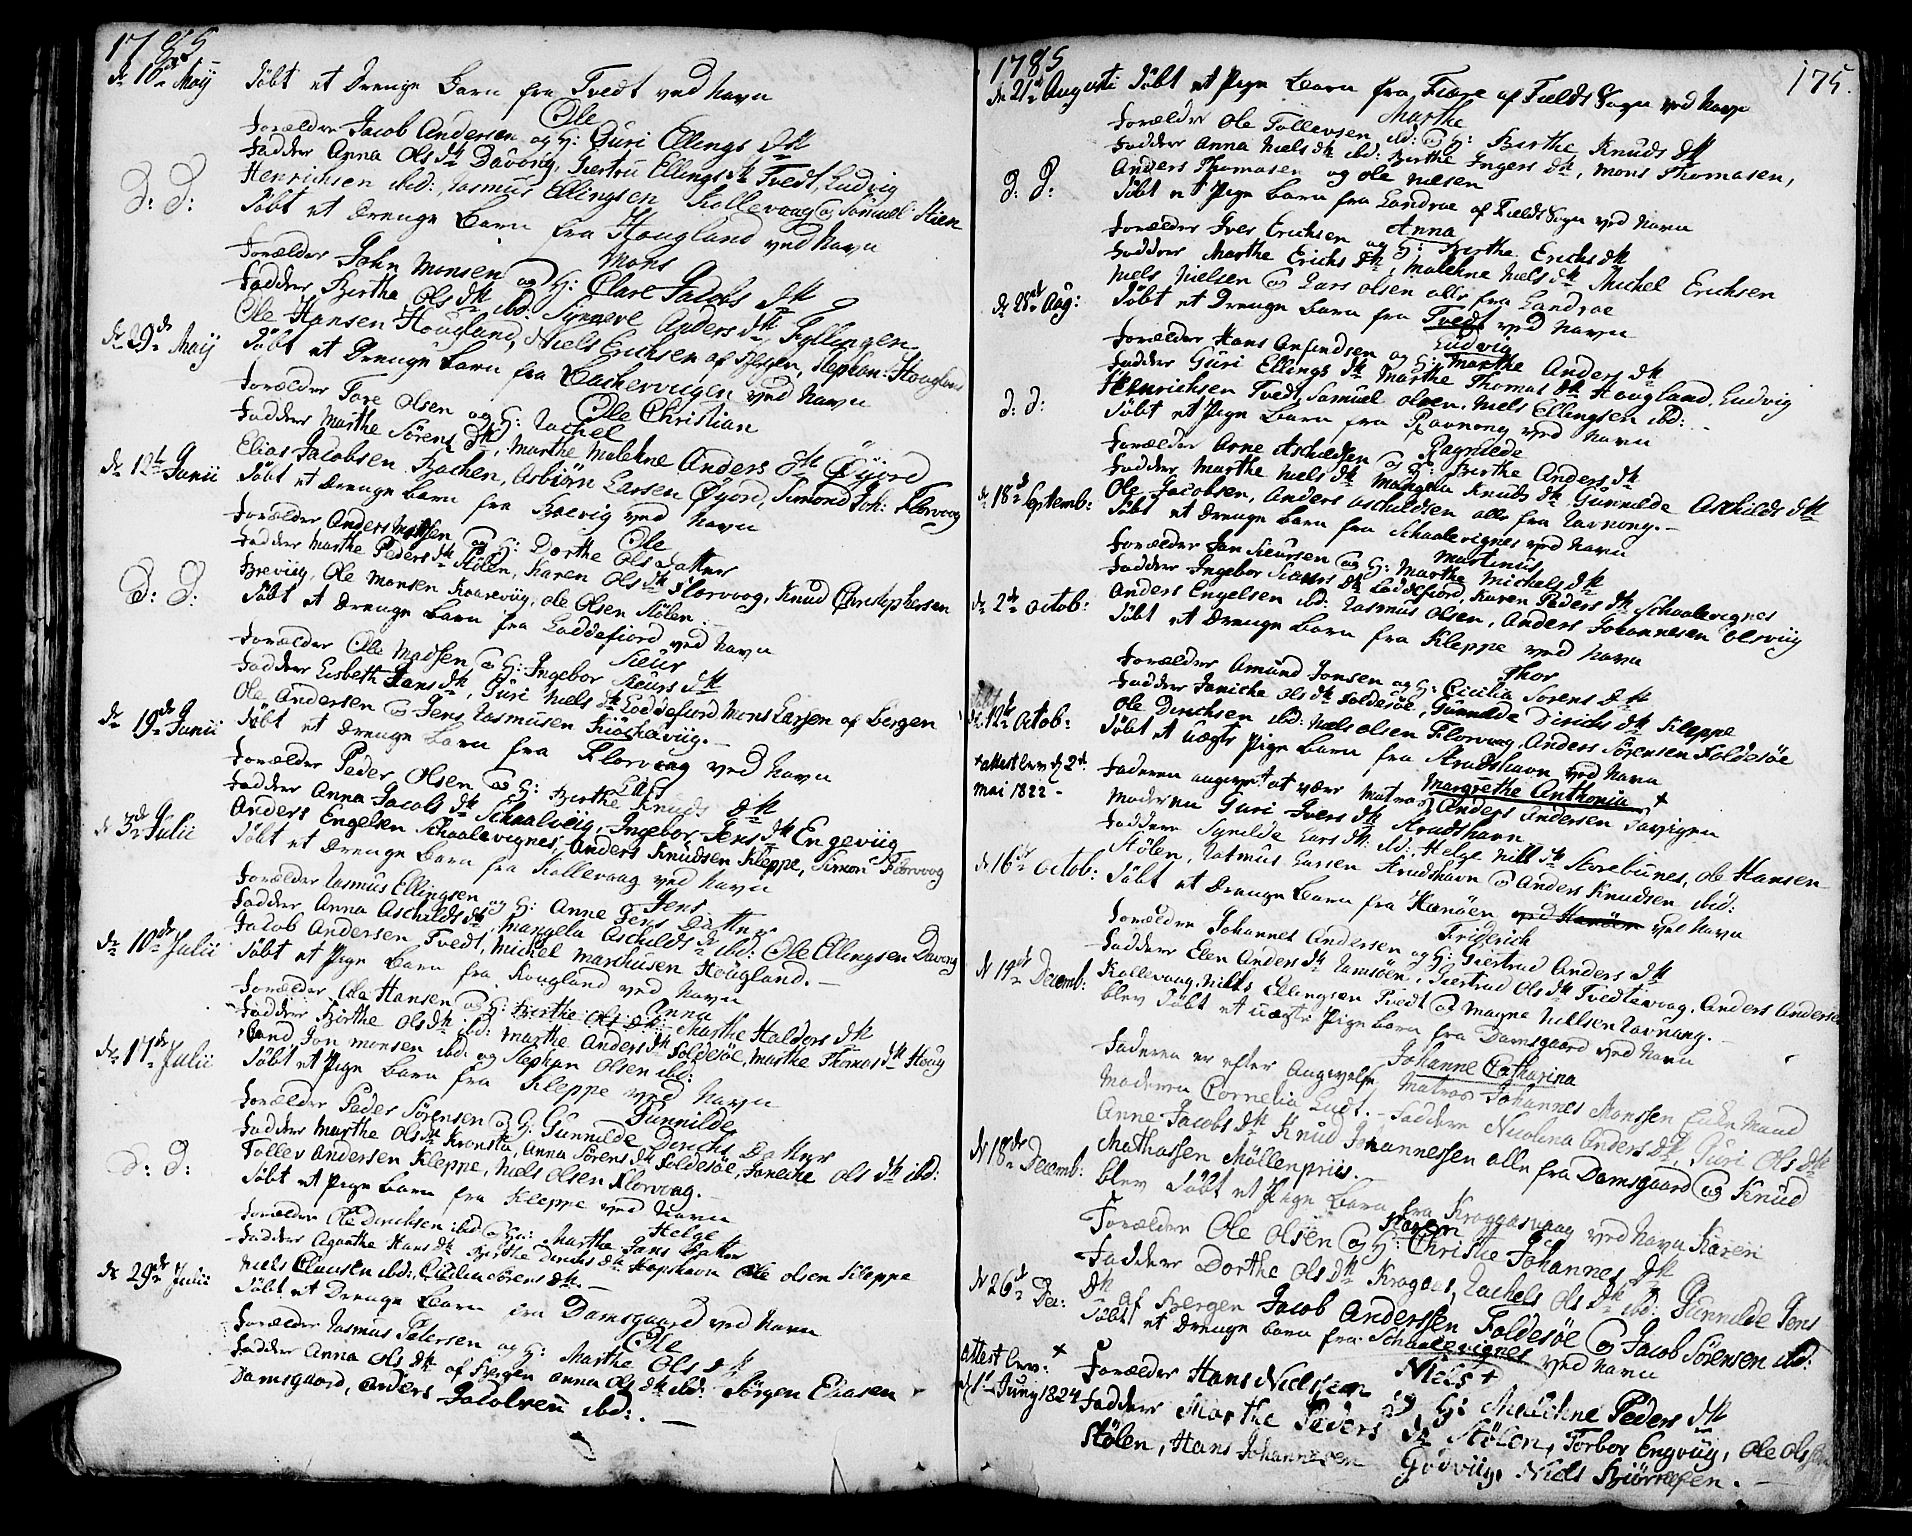 1785
d. 10de Maij Døbt et Drenge Barn fra Tvedt ved Navn
Ole
Forældre Jacob Andersen og H: Guri Ellings Dtt
Fadder Anna Ols Dtt Davong, Giertru Ellings Dtr Tvedt, Ludvig
Henrichsen ibd:, Rasmus Ellingsen Kollevaag og Samuel Stien
D: D: Døbt et Drenge Barn fra Hougland ved Navn
Mons
Forældre John Monsen og H: Clare Jacobs Dtt
Fadder Birthe Ols Dtt ibd: Synneve Anders Dtt, Tyllingen
Ole Hansen Hougland, Niels Erichsen af Bergen, Stephan: Hougland
d. 29de Maij Døbt et Drenge Barn fra Bachervigen ved Navn
Ole Christian
Forældre Tore Olsen og H: Rachel
Fadder Marthe Sørens Dtt, Marthe Malehne Anders Dtt Øyord
Elias Jacobsen, Bachen, Asbiørn Larsen Øyord, Simond Joh: Florvoog
d. 12te Junii Døbt et Drenge Barn fra Boevig ved Navn
Ole
Forældre Anders Madsen og H: Dorthe Ols Datter
Fadder Marthe Peders Dtt Stølen, Karen Ols Dtt Florvoog, Knud Christophersen
Breviig, Ole Monsen Kaareviig, Ole Olsen Stølen.
D: D: Døbt et Drenge Barn fra Loddefiord ved Navn
Sieur
Forældre Ole Madsen og H: Ingebor Sieurs Dtt
Fadder Lisbeth Hans Dtt, Guri Niels Dtt Loddefiord, Mons Larsen af Bergen
Ole Andersen og Jens Rasmusen Kiøcheviig.
d. 19de Junii Døbt et Drenge Barn fra Florvaag ved Navn
Lars
Forældre Peder Olsen og H: Birthe Knuds Dtt
Fadder Anna Jacobs Dtt Schaalvig, Ingebor Jens Dtt Engeviig
Anders Engelsen Schaalevignes, Anders Knudsen Kleppe, Simon Florvoog
d. 3de Julii Døbt et Drenge Barn fra Kollevaag ved Navn
Jens
Forældre Rasmus Ellingsen og H: Anne Jens Datter
Fadder Anna Aschilds Dtt, Mangela Aschilds Dtt ibd: Ole Ellingsen Davong
Jacob Andersen Tvedt, Michel Marchusen Hougland.
d. 10de Julii Døbt et Pige Barn fra Hougland ved Navn
Anna
Forældre Ole Hansen og H: Birthe Ols Dtt
Fadder Birthe Ols Dtt ibd: Marthe Anders Dtt Foldesøe, Marthe Thomas Dtt Houg
land Jon Monsen ibd: og Staphan Olsen ibd:
d. 17de Julii Døbt et Pige Barn fra Kleppe ved Navn
Gunnilde
Forældre Peder Sørensen og H: Gunnilde Dirichs Datter
Fadder Marthe Ols Dtt Kronsta, Anna Sørens Dtt Foldesøe, Janiche Ols Dtt ibd:
Tollev Andersen Kleppe, Niels Olsen Florvaag.
D: D: Døbt et Pige Barn fra Kleppe ved Navn
Helge
Forældre Ole Derichsen ibd og H: Marthe Jans Datter
Fadder Agaathe Hans Dtt Birthe Dirichs Dtt Hopshavn Ole Olsen Kleppe
Niels Clausen ibd: Cicilia Sørens Dtt.
d. 29de Julii Døbt et Drenge Barn fra Damsgaard ved Navn
Ole
Forældre Rasmus Petersen og H: Marthe Ols Dtt
Fadder Anna Ols Dtt af Bergen Anna Ols Dtt ibd: Jørgen Eliasen
Damsgaard, Anders Jacobsen ibd:.
1785
175.
d. 21de Augusti Døbt et Pige Barn fra Fiære af Fields Sogn ved Navn
Marthe
Forældre Ole Tollevsen ibd: og H: Birthe Knuds Dtt
Fadder Anna Niels Dtt ibd: Birthe Ingers Dtt, Mons Thomasen,
Anders Thomasen og Ole Nielsen
D: D: Døbt et Pige Barn fra Landroe af Fields Sogn ved Navn
Anna
Forældre Iver Erichsen og H: Birthe Erichs Dtt
Fadder Marthe Erichs Dtt, Malehne Niels Dtt Michel Erichsen
Niels Nielsen og Lars Olsen alle fra Landroe
d. 28de Aug: Døbt et Drenge Barn fra Tvedt ved Navn
Ludvig
Forældre Hans Anfindsen og H: Marthe Anders Dtt
Fadder Guri Ellings Dtt Marthe Thomas Dtt Hougland, Ludvig
Henrichsen Tvedt, Samuel Olsen, Niels Ellingsen ibd:
D: D: Døbt et Pige Barn fra Ravnong ved Navn
Ragnilde
Forældre Arne Aschildsen og H: Birthe Anders Dtt
Fadder Marthe Niels Dtt Mangela Knuds Dtt Gunnilde Aschilds Dtt
Ole Jacobsen, Anders Aschildsen alle fra Ravnong.
d. 18de Septemb: Døbt et Drenge Barn fra Schaalevignes ved Navn
Martinus
Forældre Jan Sieursen og H: Marthe Michels Dtt
Fadder Ingebor Sieurs Dtt Loddefiord, Karen Peders Dtt Schaalevignes
Anders Engelsen ibd: Rasmus Olsen, Anders Johannesen Olsviig
d. 2de Octob: Døbt et Drenge Barn fra Kleppe ved Navn
Thor
Forældre Amund Jonsen og H: Cicilia Sørens Dtt
Fadder Janiche Ols Dtt Foldesøe, Gunnilde Dirichs Dtt Kleppe
Ole Dirichsen ibd: Niels Olsen Florvaag Anders Sørensen Foldesøe
d. 12te Octob: Døbt et uægte Pige Barn fra Strudshavn ved Navn
Margrethe Anthonia +
+ attest lev: d 2d. Faderen angivet at være Matros Anders Andersen
Mai 1822 - Moderen Guri Ivers Dtt Strudshavn
Faddere Synilde Lars Dtt ibd: Helge Nills Dtt Storebunes, Ole Hansen
Stølen, Rasmus Larsen Strudshavn og Anders Knudsen ibd:
d. 16de Octob: Døbt et Drenge Barn fra Hanøen ved Hanøen ved Navn
Friderich
Forældre Johannes Andersen og H: Giertrud Anders Dtt
Fadder Elen Anders Dtt Ramsøen, Giertrud Ols Dtt Tvedtevaag, Anders Anders
Kollevaag, Nills Ellingsen Tvedt og Magne Nillsen Ravnang.
d. 14de Decemb: blev Døbt et uægte Pige Barn fra Damsgaard ved Navn
Johanne Catharina
Faderen er efter Angivelse Matros Johannes Monssen Enke Mand
Moderen Cornelia Ludt. - Faddere Nicolina Anders Dtt, Guri Ols Dtt
Anne Jacobs Dtt Knud Johannessen alle fra Damsgaard og Knud
Mathassen Møllenpriis.
d. 18de Decemb: blev Døbt et Pige Barn fra Kroggasvaag ved Navn Karen
Karen
Forældre Ole Olsen og H: Christie Johannes Dtt
Fadder Dorthe Ols Dtt Krogaas, Rachels Ols Dtt ibd: Gunnilde Jens
Dtt af Bergen Jacob Anderssen Foldesøe og Jacob Sørensen ibd:
d. 26de Dec: Døbt et Drenge Barn fra Schaalevignes ved Navn
Niels +
attest lev: + Forældre Hans Nielssen og H: Malehne Peders Dtt
d 1te Juny 1824 Fadder Marthe Peders Dtt Stølen, Torbor Engviig, Ole Ols
Stølen, Hans Johannesen Godviig, Niels Biørnesen.